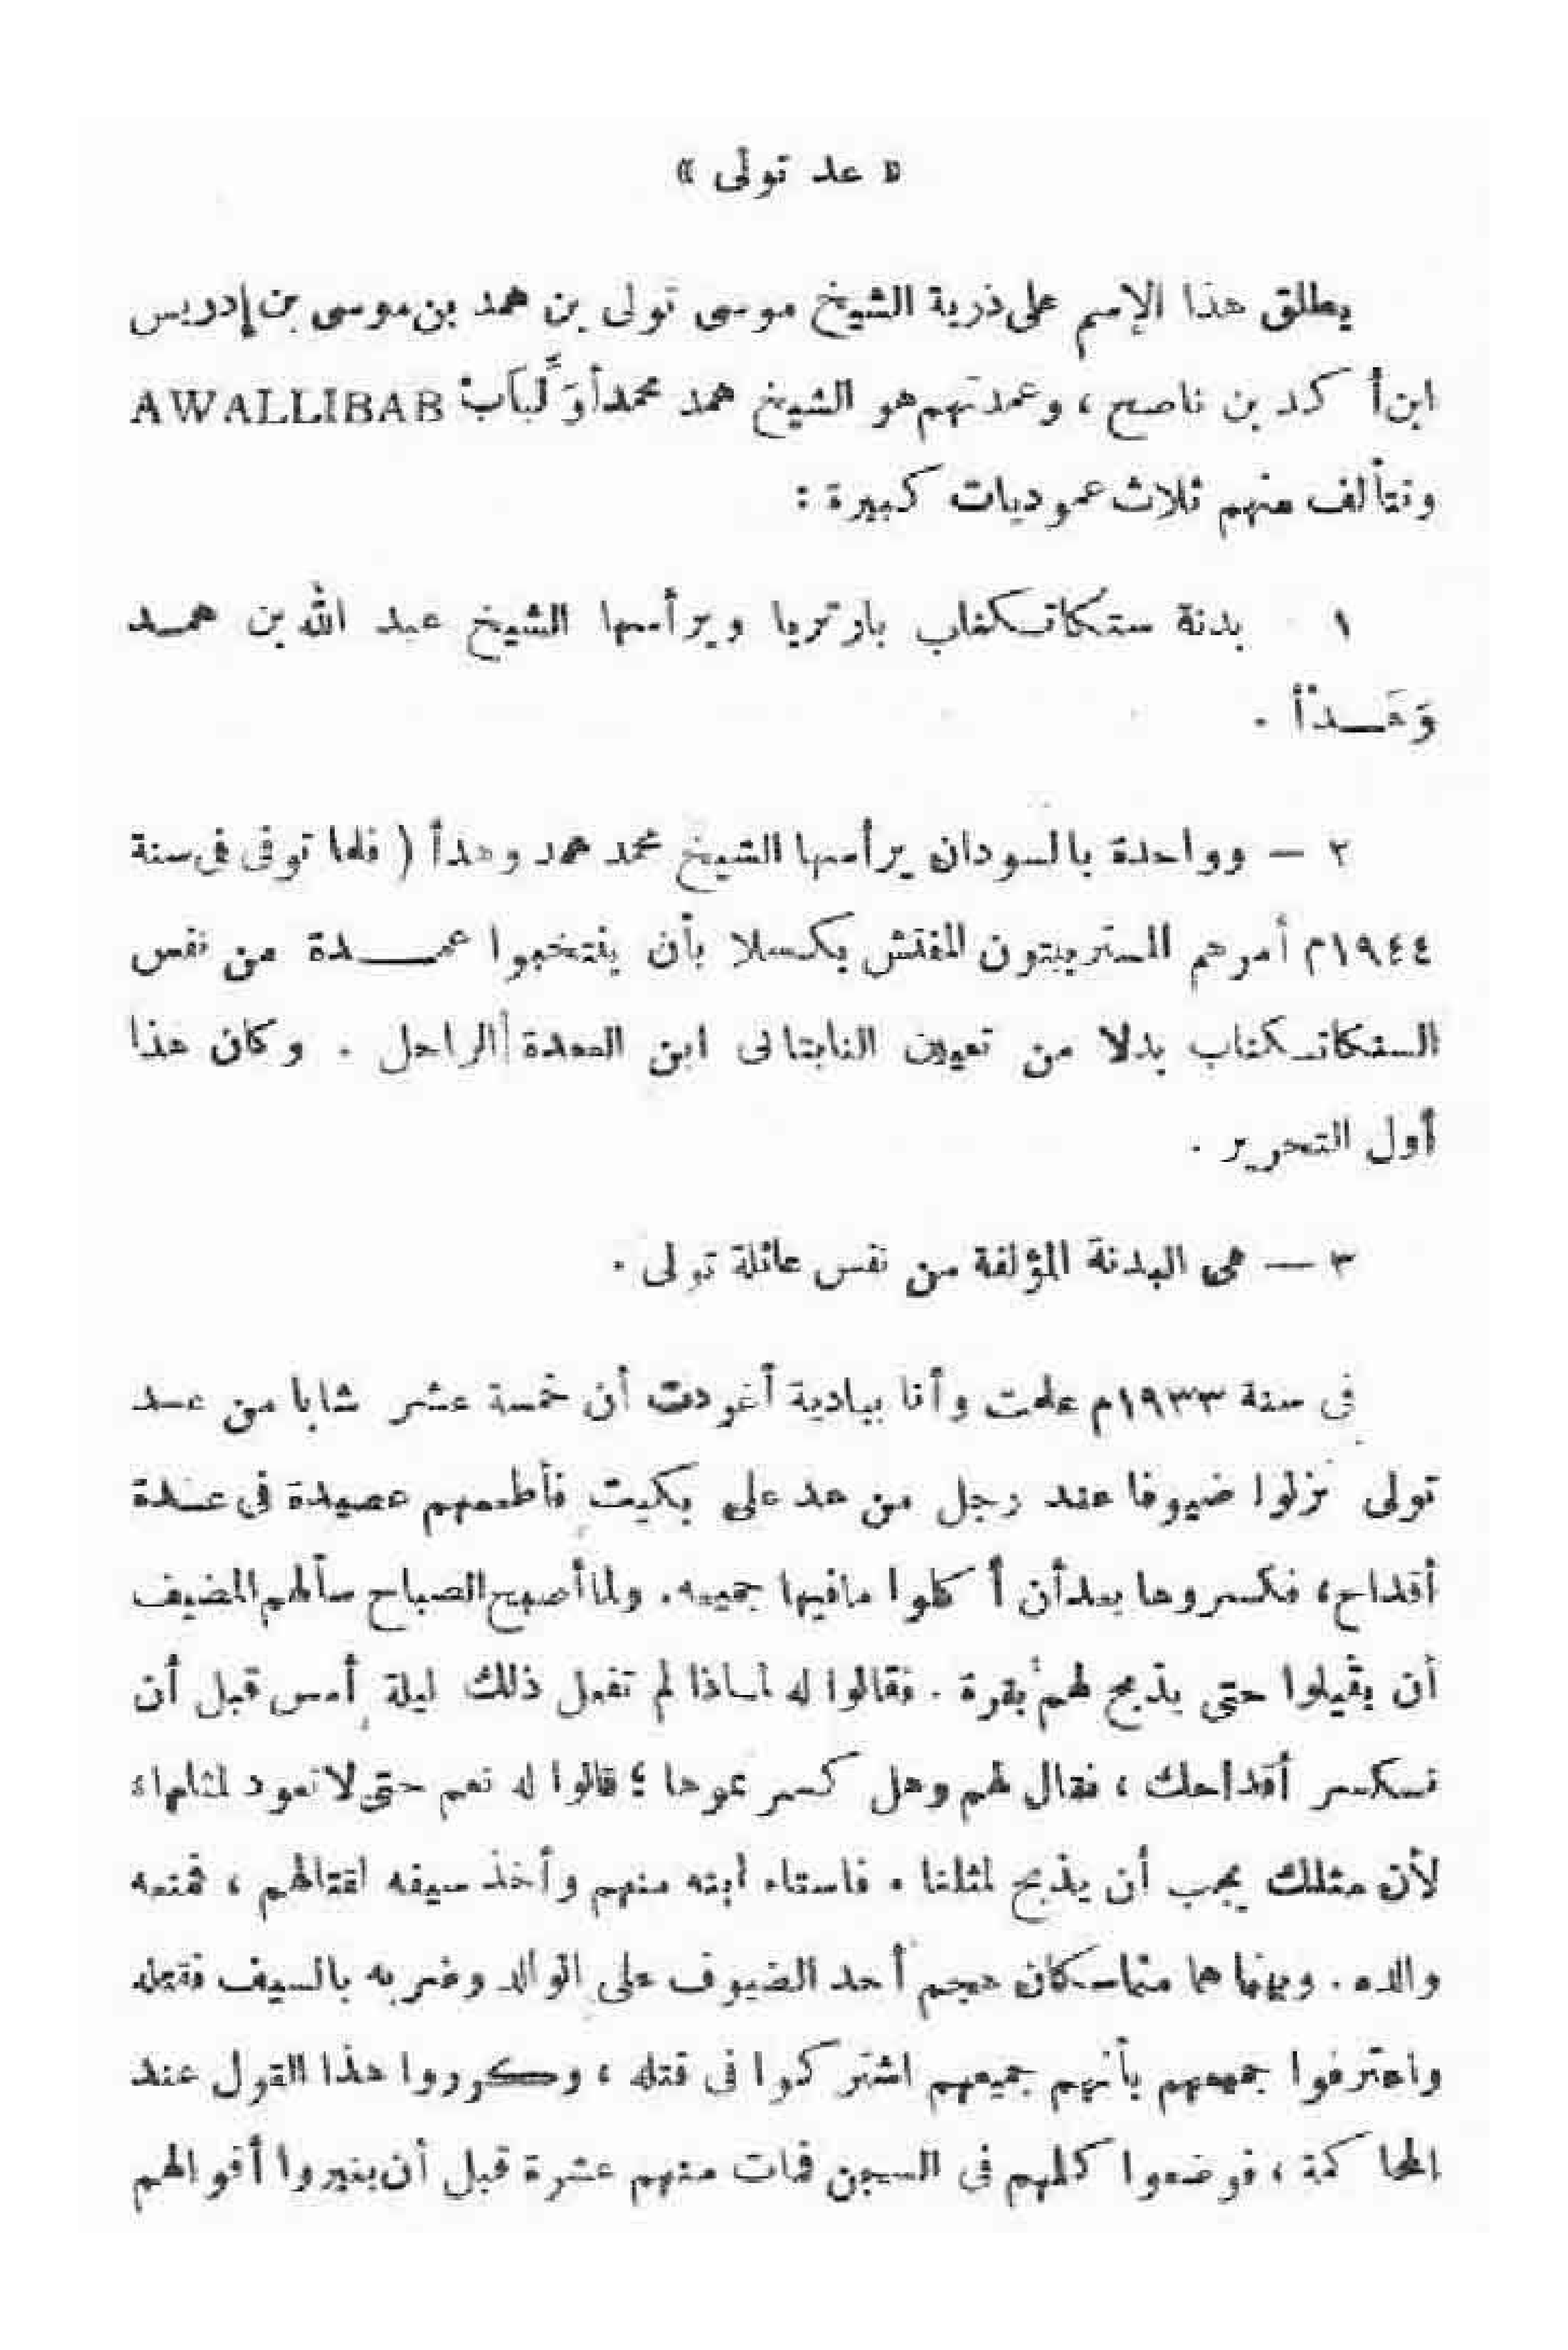 « عد تولى »
يطلق هذا الإسم على ذرية الشيخ موسى تولى بن همد بن موسى بن إدريس
ابن أكد بن ناصح ، وعمدتهم هو الشيخ همد محمد أوَلِّبَابْ AWALLIBAB
وتتألف منهم ثلاث عموديات كبيرة :
١ بدنة ستكاتكناب بارتريا ويرأسها الشيخ عبد الله بن همـد
.
٢ — وواحدة بالسودان يرأسها الشيخ محمد همد وهدأ ( فلما توفى فى سنة
١٩٤٤م أمرهم المستر بيتون المفتش بكسلا بأن ينتخبوا عمـــدة من نفس
الستكاتكناب بدلا من تعيين النابتالى ابن العمدة الراحل . وكان هذا
أول التحرير .
٣ — هى البدنة المؤلفة من نفس عائلة تولى .
فى سنة ١٩٣٣م علمت وأنا ببادية أغردت أن خمسة عشر شابا من عـد
تولى نزلوا ضيوفا عند رجل من عد على بكيت فأطعمهم عصيدة فى عـدة
أقداح ، فكسروها بعد أن أكلوا مافيها جميعه . ولما أصبح الصباح سألهم المضيف
أن يقيلوا حتى يذبح لهم بقرة . فقالوا له لمـاذا لم تفعل ذلك ليلة أمس قبل أن
نـكسر أقداحك ، فقال لهم وهل كسرتموها ؟ قالوا له نعم حتى لا تعود لمثلها ،
لأن مثلك يجب أن يذبح لمثلنا . فاستاء ابنه منهم وأخذ سيفه لقتالهم ، فمنعه
والده . وبينما هما متماسكان هجم أحد الضيوف على الوالد وضربه بالسيف فقتله
واعترفوا جميعهم بأنهم جميعهم اشتركوا فى قتله ، وكرروا هذا القول عند
المحاكمة ، فوضعوا كلهم فى السجن فمات منهم عشرة قبل أن يغيروا أقوالهم